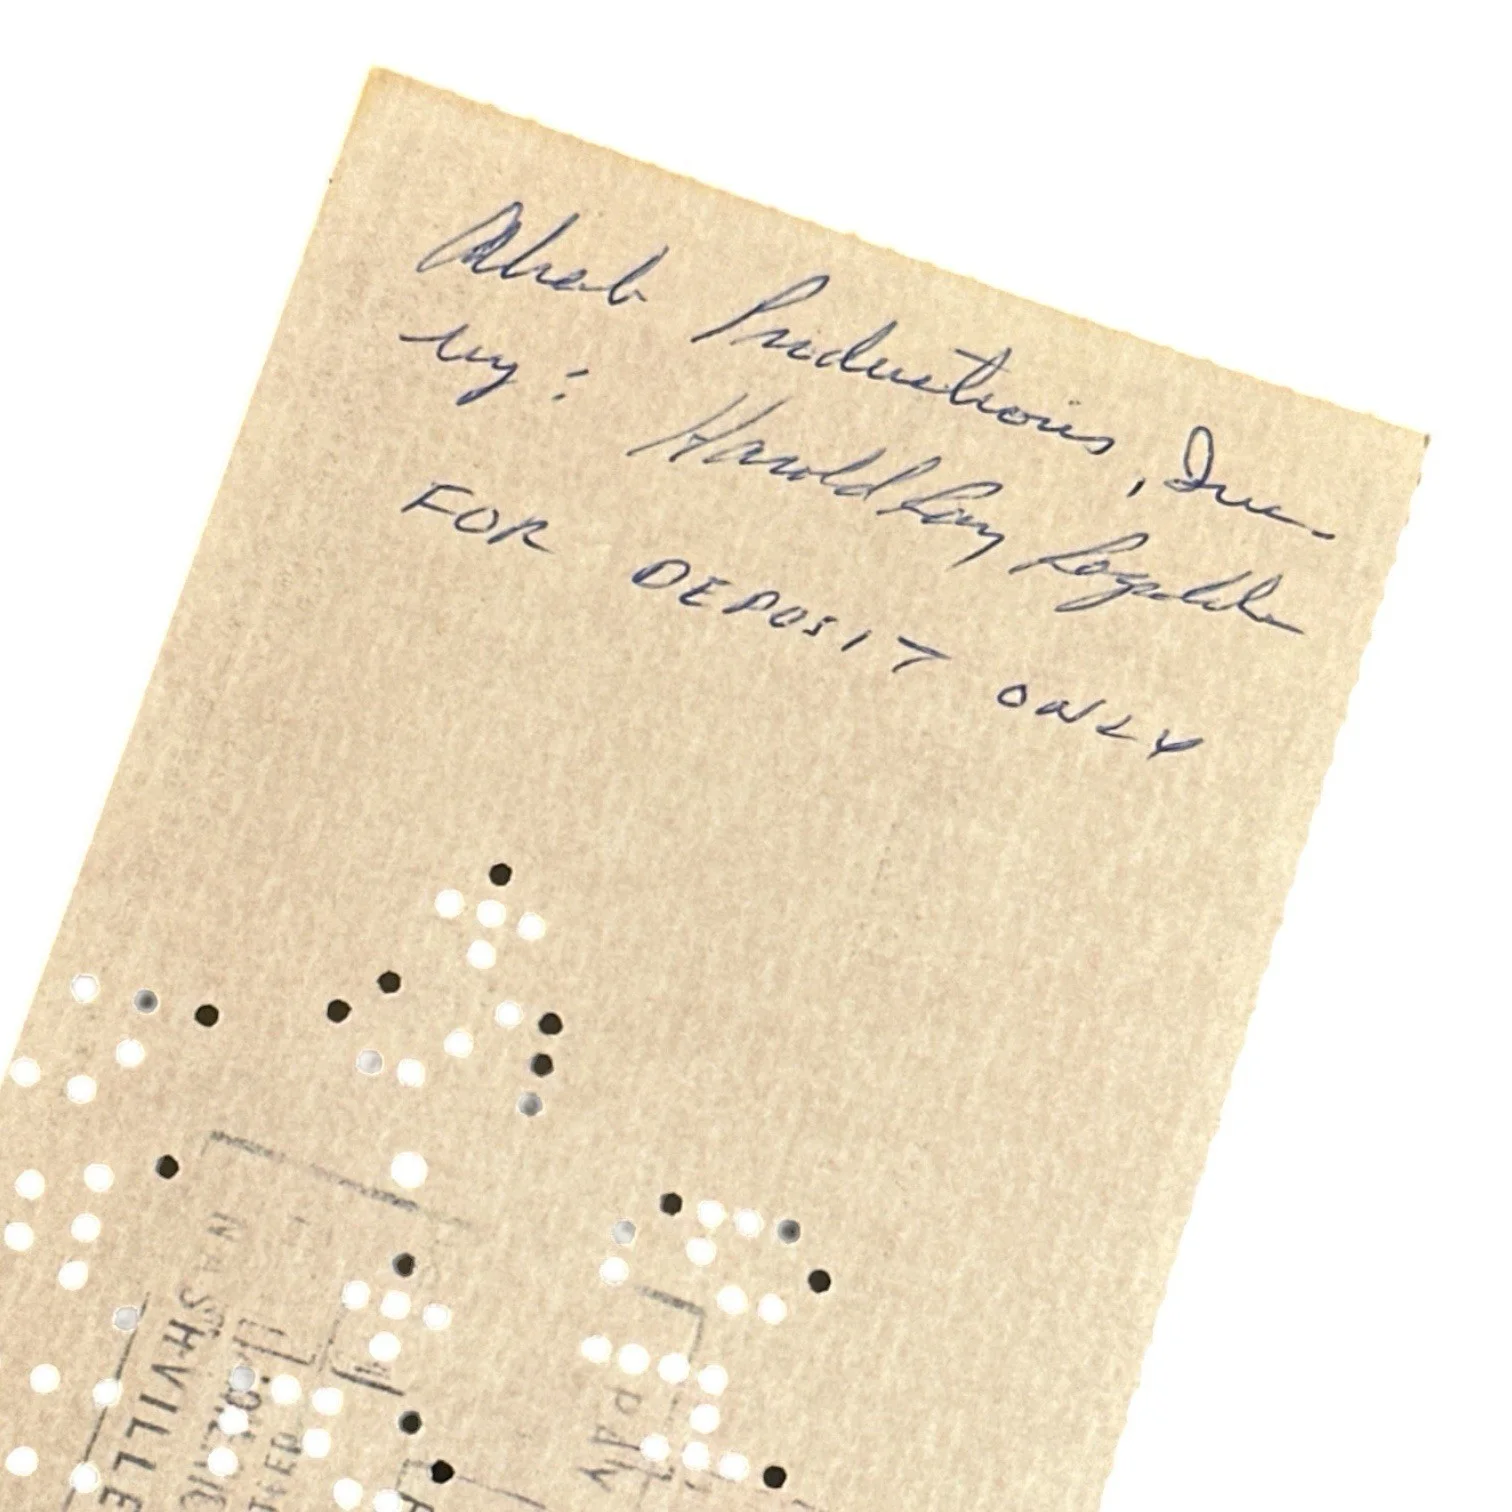 Ahab Productions, Inc.
by: Harold Ray Ragsdale
FOR DEPOSIT ONLY
NASHVILLE
PAY